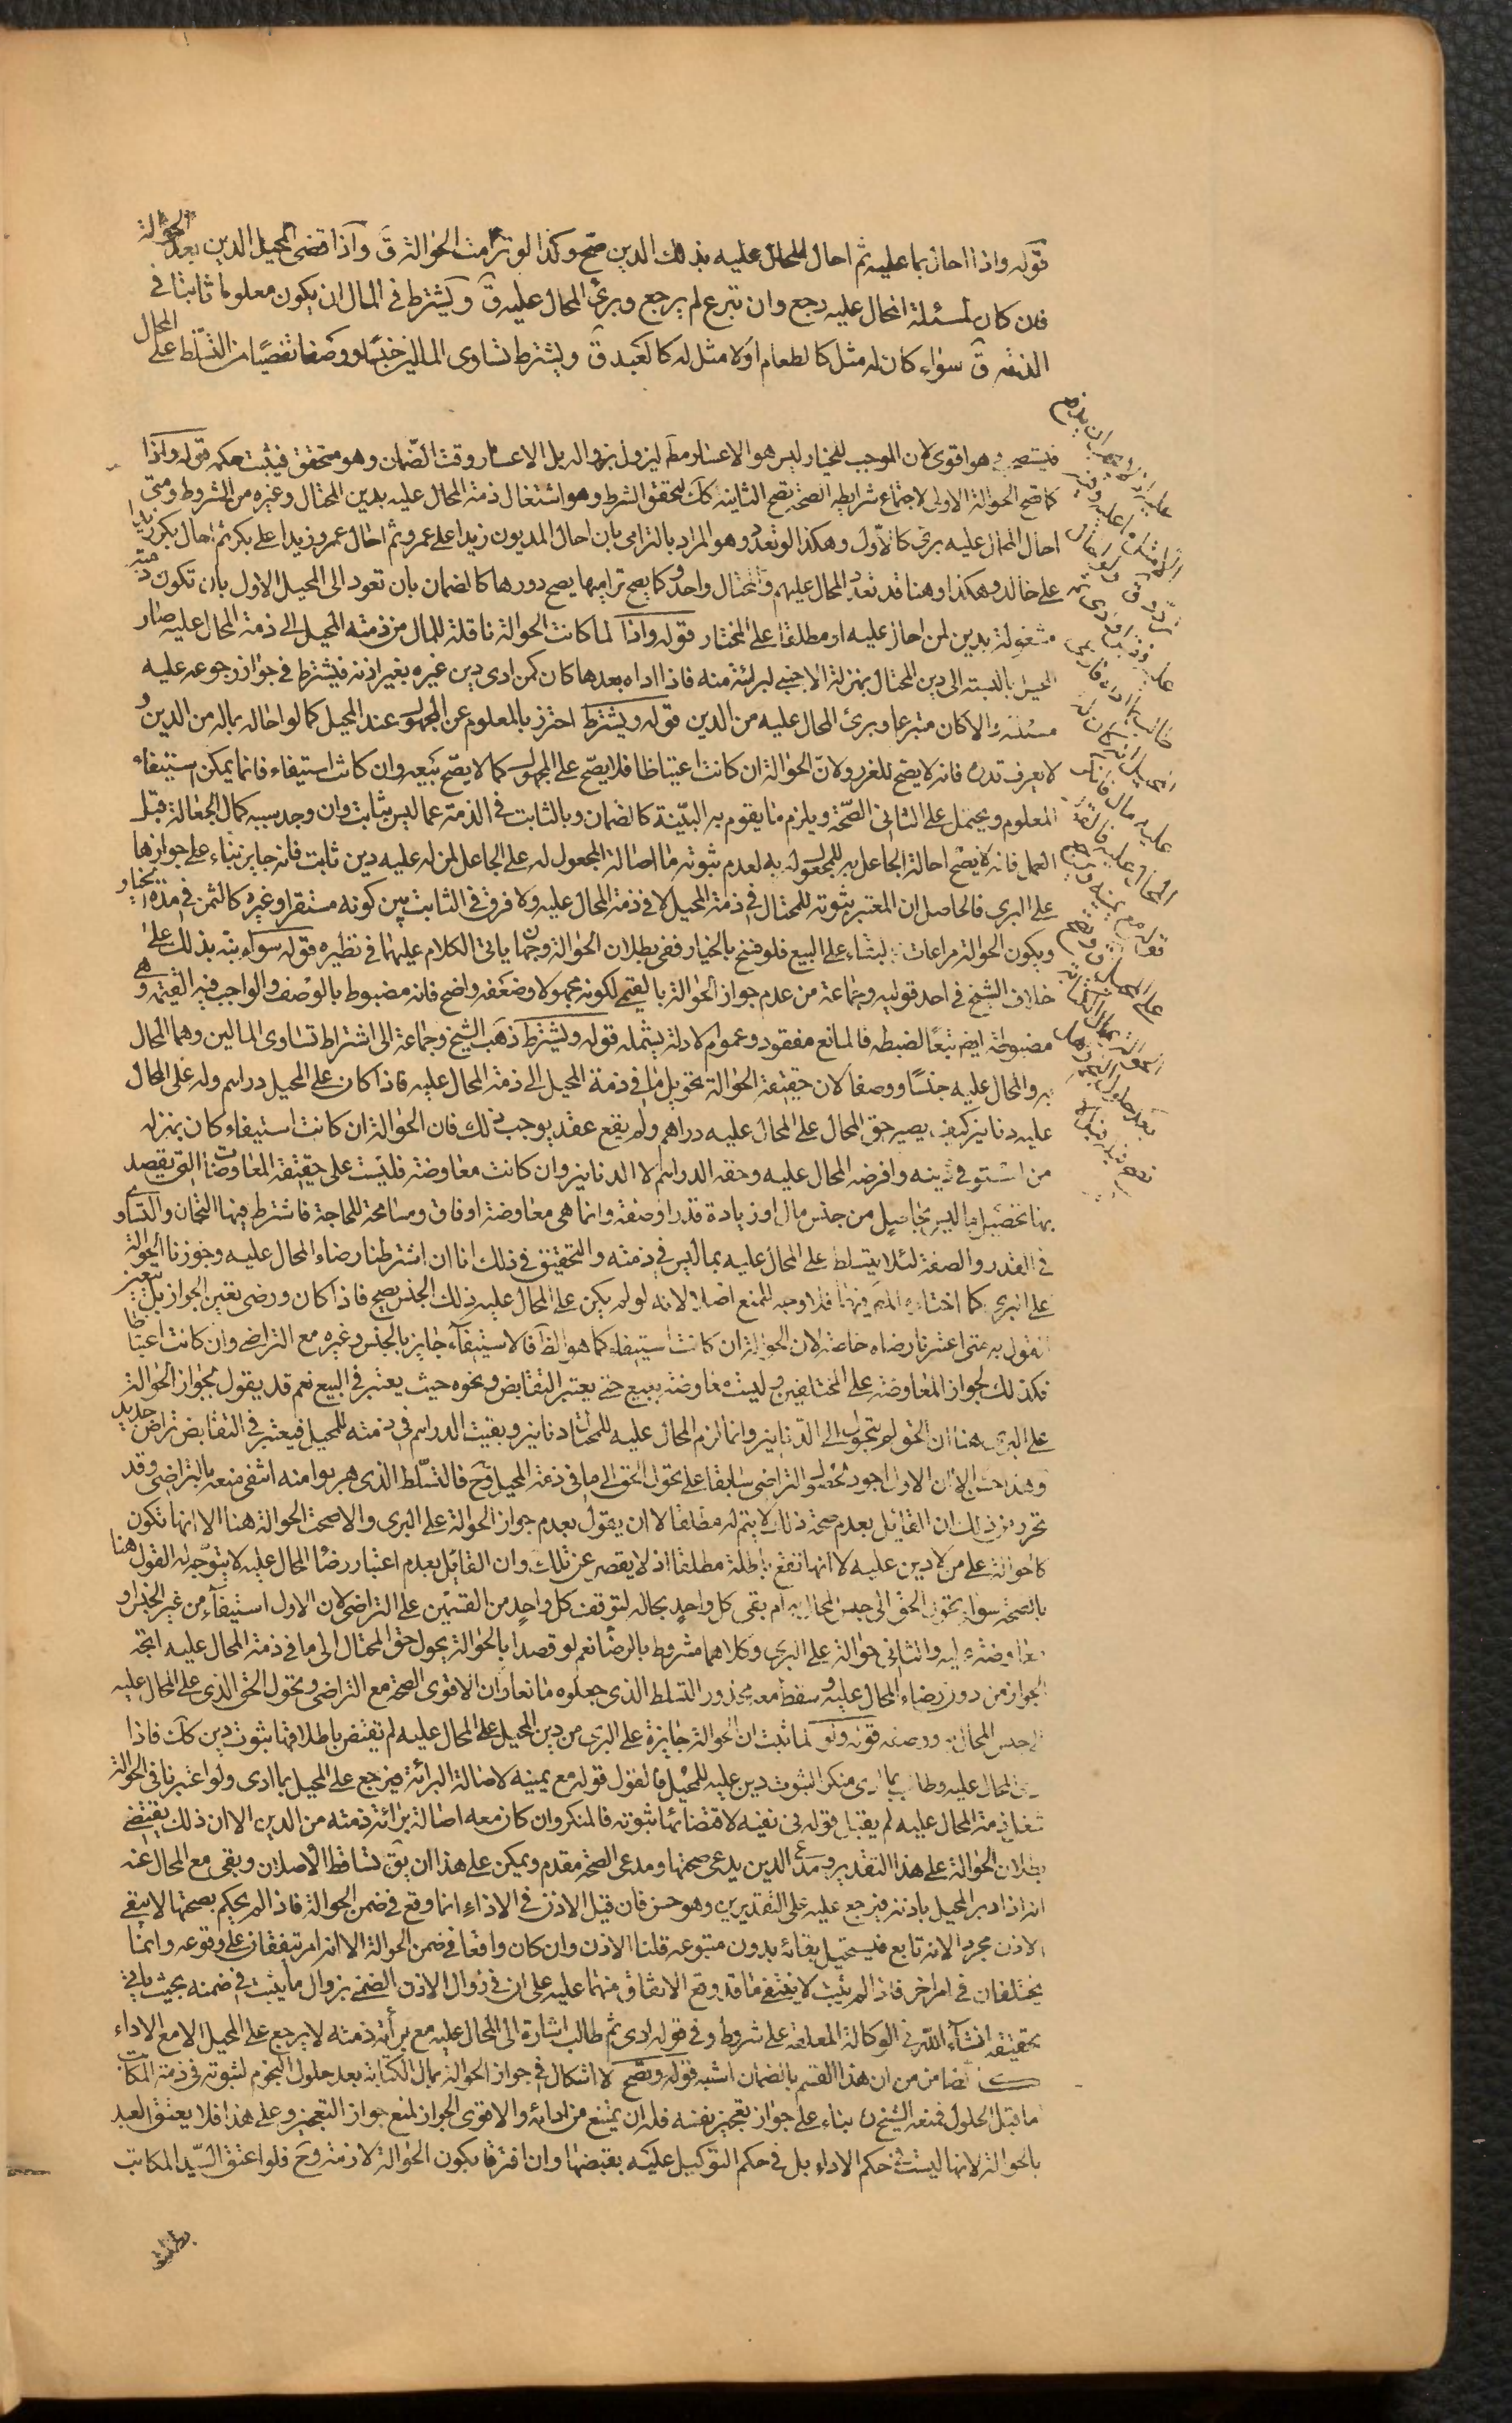 قوله واذا احال بما عليه ثم احال المحال عليه بذلك الدين صح وكذا لو ترامت الحوالة ق واذا قضى المحيل الدين بعد الحوالة
فان كان لمسئلة المحال عليه رجع وان تبرع لم يرجع وبرئ المحال عليه ق ويشترط في المال ان يكون معلوما ثابتا في
الذمة ق سواء كان له مثل كالطعام اولا مثل له كالعبد ق ويشترط تساوى المالين جنسا ووصفا تفصيا من التسلط على المحال
عليه اذ لا يجب ان يدفع
الا مثل ما عليه وفيه
تردد ق ولو احال
عليه فقبل وادى ثم
طالب بما اداه فادعى
المحيل انه كان له
عليه مال فانكر
المحال عليه فالقول
قوله مع يمينه ويرجع
على المحيل ق وتصح
الحوالة بمال الكتابة
بعد حلول النجم وهل
تصح قبله قيل لا
فيستصحب وهو اقوى لان الموجب للخيار ليس هو الاعسار مط ليزول بزواله بل الاعسار وقت الضمان وهو متحقق فيثبت حكمه قوله واذا
كما تصح الحوالة الاولى لاجتماع شرايط الصحة تصح الثانية كك لتحقق الشرط وهو اشتغال ذمة المحال عليه بدين المحتال وغيره من الشروط ومتى
احال المحال عليه برئ كالاول وهكذا لو تعدد وهو المراد بالترامى بان احال المديون زيدا على عمرو ثم احال عمرو زيدا على بكر ثم احال بكر زيدا
على خالد وهكذا وهنا قد تعدد المحال عليهم والمحتال واحد وكما يصح تراميها يصح دورها كالضمان بان تعود الى المحيل الاول بان تكون ذمته
مشغولة بدين لمن احال عليه او مطلقا على المختار قوله واذا لما كانت الحوالة ناقلة للمال من ذمته المحيل الى ذمة المحال عليه صار
المحيل بالنسبة الى دين المحتال بمنزلة الاجنبي لبرائته منه فاذا اداه بعدها كان كمن ادى دين غيره بغير اذنه فيشترط في جواز رجوعه عليه
مسئلته والا كان متبرعا وبرئ المحال عليه من الدين قوله ويشترط احترز بالمعلوم عن المجهول عند المحيل كما لو احاله بماله من الدين و
لا يعرف قدره فانه لا يصح للغرر ولان الحوالة ان كانت اعتياضا فلا يصح على المجهول كما لا يصح بيعه وان كانت استيفاء فانما يمكن استيفاء
المعلوم ويحتمل على الثانى الصحة ويلزم ما يقوم به البينة كالضمان وبالثابت في الذمة عما ليس بثابت وان وجد سببه كمال الجعالة قبل
العمل فانه لا يصح احالة الجاعل به للمجعول له به لعدم ثبوته ما احالة المجعول له على الجاعل لمن له عليه دين ثابت فانه جايز بناء على جوازها
على البرى فالحاصل ان المعتبر ثبوته للمحتال في ذمة المحيل لا في ذمة المحال عليه ولا فرق في الثابت بين كونه مستقرا وغيره كالثمن في مدة الخيار
ويكون الحوالة مراعات بالبناء على البيع فلو فسخ بالخيار ففى بطلان الحوالة وجهان يأتى الكلام عليهما في نظيره قوله سواء نبه بذلك على
خلاف الشيخ في احد قوليه وجماعة من عدم جواز الحوالة بالقيمي لكونه مجهولا وضعفه واضح فانه مضبوط بالوصف والواجب فيه القيمة وهى
مضبوطة ايض تبعا لضبطه فالمانع مفقود وعموم الادلة يشمله قوله ويشترط ذهب الشيخ وجماعة الى اشتراط تساوى المالين وهما المحال
به والمحال عليه جنسا ووصفا لان حقيقة الحوالة تحويل ما في ذمة المحيل الى ذمة المحال عليه فاذا كان على المحيل دراهم وله على المحال
عليه دنانير كيف يصير حق المحال على المحال عليه دراهم ولم يقع عقد يوجب ذلك فان الحوالة ان كانت استيفاء كان بمنزلة
من استوفى دينه واقرضه المحال عليه وحقه الدراهم لا الدنانير وان كانت معاوضة فليست على حقيقة المعاوضات التى يقصد
بها تحصيل ما ليس بحاصل من جنس مال او زيادة قدر او صفة وانما هى معاوضة ارفاق ومسامحة للحاجة فاشترط فيها التجانس والتساوى
في القدر والصفة لئلا يتسلط على المحال عليه بما ليس في ذمته والتحقيق في ذلك انا ان اشترطنا رضاء المحال عليه وجوزنا الحوالة
على البرى كما اختاره المص فيهما فلا وجه للمنع اصلا لانه لو لم يكن على المحال عليه ذلك الجنس يصح فاذا كان ورضى تعين الجواز بل يتعين
القول به متى اعتبرنا رضاه خاصة لان الحوالة ان كانت استيفاء كما هو الظ فالاستيفاء جايز بالجنس وغيره مع التراضى وان كانت اعتياضا
فكذلك لجواز المعاوضة على المختلفين وليست معاوضة ببيع حتى يعتبر التقابض ونحوه حيث يعتبر في البيع نعم قد يقول بجواز الحوالة
على البرى هنا ان الحق لم يتحول الى الدنانير وانما لزم المحال عليه للمحتال دنانير وبقيت الدراهم في ذمته للمحيل فيعتبر في التقابض تراض جديد
وهذا حسن الا ان الاول اجود لحصول التراضى سابقا على تحول الحق الى ما في ذمة المحيل وح فالتسلط الذى هربوا منه انتفى منعه بالتراضى وقد
تحرر من ذلك ان القائل بعدم صحة ذلك لا يتم له مطلقا الا ان يقول بعدم جواز الحوالة على البرى والا صحت الحوالة هنا الا انها تكون
كالحوالة على من لا دين عليه لا انها تقع باطلة مطلقا اذ لا يقصر عن تلك وان القائل بعدم اعتبار رضا المحال عليه لا يتوجه له القول هنا
بالصحة سواء تحول الحق الى جنس المحال به ام بقى كل واحد بحاله لتوقف كل واحد من القسمين على التراضى لان الاول استيفاء من غير الجنس او
معاوضة عليه والثانى حوالة على البرى وكلاهما مشروط بالرضا نعم لو قصدا بالحوالة يحول حق المحتال الى ما في ذمة المحال عليه اتجه
الجواز من دون رضاء المحال عليه وسقط معه محذور التسلط الذى جعلوه مانعا وان الاقوى الصحة مع التراضى وتحول الحق الذى على المحال عليه
الى جنس المحال به ووصفه قوله ولو لما ثبت ان الحوالة جايزة على البرى من دين المحيل على المحال عليه لم تقتض باطلاقها ثبوت دين كك فاذا
ادى المحال عليه وطالب بما ادى منكرا لثبوت دين عليه للمحيل فالقول قوله مع يمينه لاصالة البرائة فيرجع على المحيل بما ادى ولو اعتبرنا في الحوالة
شغل ذمة المحال عليه لم يقبل قوله في نفيه لاقتضائها ثبوته فالمنكر وان كان معه اصالة برائة ذمته من الدين الا ان ذلك يقتضى
بطلان الحوالة على هذا التقدير ومدعى الدين يدعى صحتها ومدعى الصحة مقدم ويمكن على هذا ان يق تساقط الاصلان وبقى مع المحال عنه
انه اذا دين المحيل باذنه فيرجع عليه على التقديرين وهو حسن فان قيل الاذن في الاداء انما وقع في ضمن الحوالة فاذا لم يحكم بصحتها لا يبقى
الاذن مجردا لانه تابع فيستحيل بقائه بدون متبوعه قلنا الاذن وان كان واقعا في ضمن الحوالة الا انه امر متفقان على وقوعه وانما
يختلفان في امر اخر فاذا لم يثبت لا ينتفى ما قد وقع الاتفاق منهما عليه على ان في زوال الاذن الضمنى بزوال ما يثبت في ضمنه بحيث يأتى
تحقيقه انشاء الله في الوكالة المعلقة على شروط وفى قوله ادى ثم طالب اشارة الى المحال عليه مع برأة ذمته لا يرجع على المحيل الا مع الاداء
كالضامن من ان هذا القسم بالضمان اشبه قوله وتصح لا اشكال في جواز الحوالة بمال الكتابة بعد حلول النجوم لثبوته في ذمة المكاتب
اما قبل الحلول فمنعه الشيخ بناء على جواز تعجيز نفسه فله ان يمتنع من ادائه والاقوى الجواز لمنع جواز التعجيز وعلى هذا فلا يعتق العبد
بالحوالة لانها ليست في حكم الاداء بل في حكم التوكيل عليه بقبضها وان افترقا بكون الحوالة لازمة وح فلو اعتق السيد المكاتب